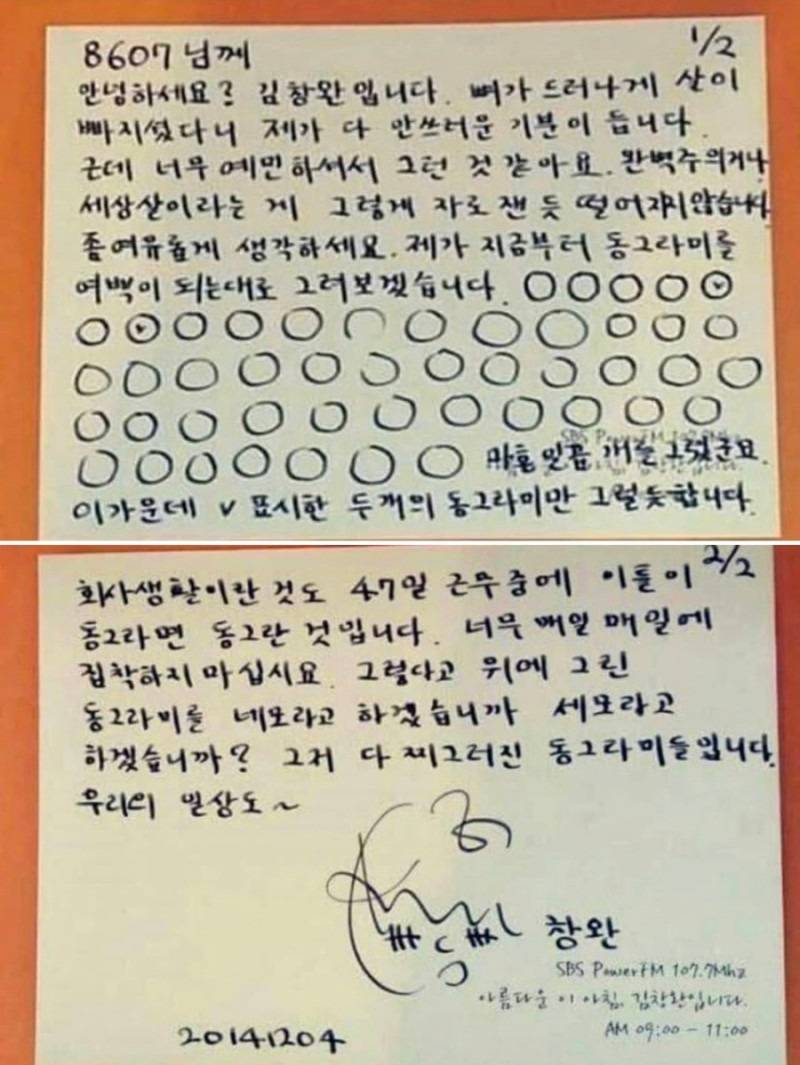 8607님께
1/2
안녕하세요? 김창완입니다. 뼈가 드러나게 살이
빠지셨다니 제가 다 안쓰러운 기분이 듭니다.
근데 너무 예민하셔서 그런 것 같아요. 완벽주의거나
세상살이라는 게 그렇게 자로 잰 듯 떨어지지않습니다
좀 여유롭게 생각하세요. 제가 지금부터 동그라미를
여백이 되는대로 그려보겠습니다.
마흔일곱 개를 그렸군요.
SBS PowerFM 107.7Mhz
이가운데 V 표시한 두개의 동그라미만 그럴듯합니다.
2/2
회사생활이란 것도 47일 근무 중에 이틀이
동그라면 동그란 것입니다. 너무 매일 매일에
집착하지 마십시요. 그렇다고 위에 그린
동그라미를 네모라고 하겠습니까 세모라고
하겠습니까? 그저 다 찌그러진 동그라미들입니다.
우리의 일상도~
창완
SBS PowerFM 107.7Mhz
아름다운 이 아침, 김창완입니다.
AM 09:00 - 11:00
20141204